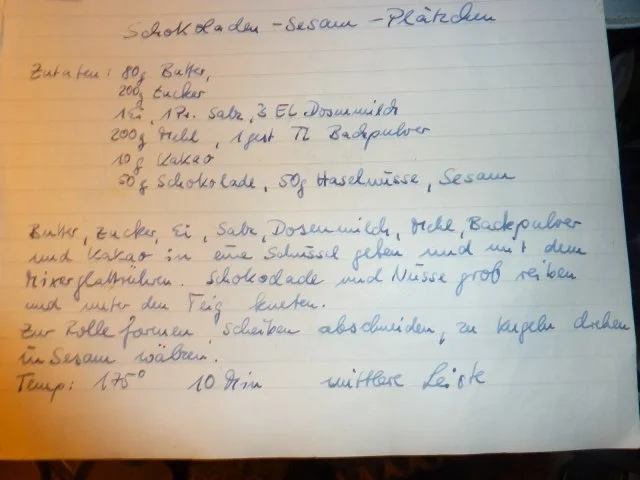 Schokoladen - Sesam - Plätzchen
Zutaten: 80g Butter,
200g Zucker
1 Ei, 1 Pr. Salz, 3 EL Dosenmilch
200g Mehl, 1 gest TL Backpulver
10g Kakao
50g Schokolade, 50g Haselnüsse, Sesam
Butter, Zucker, Ei, Salz, Dosenmilch, Mehl, Backpulver
und Kakao in eine Schüssel geben und mit dem
Mixer glattrühren. Schokolade und Nüsse grob reiben
und unter den Teig kneten.
Zur Rolle formen, Scheiben abschneiden, zu Kugeln drehen
in Sesam wälzen.
Temp: 175° 10 Min mittlere Leiste